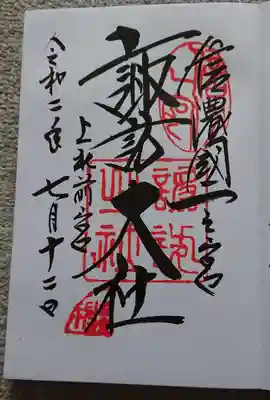 信濃國一之宮
諏訪大社
上社前宮
令和二年七月十二日